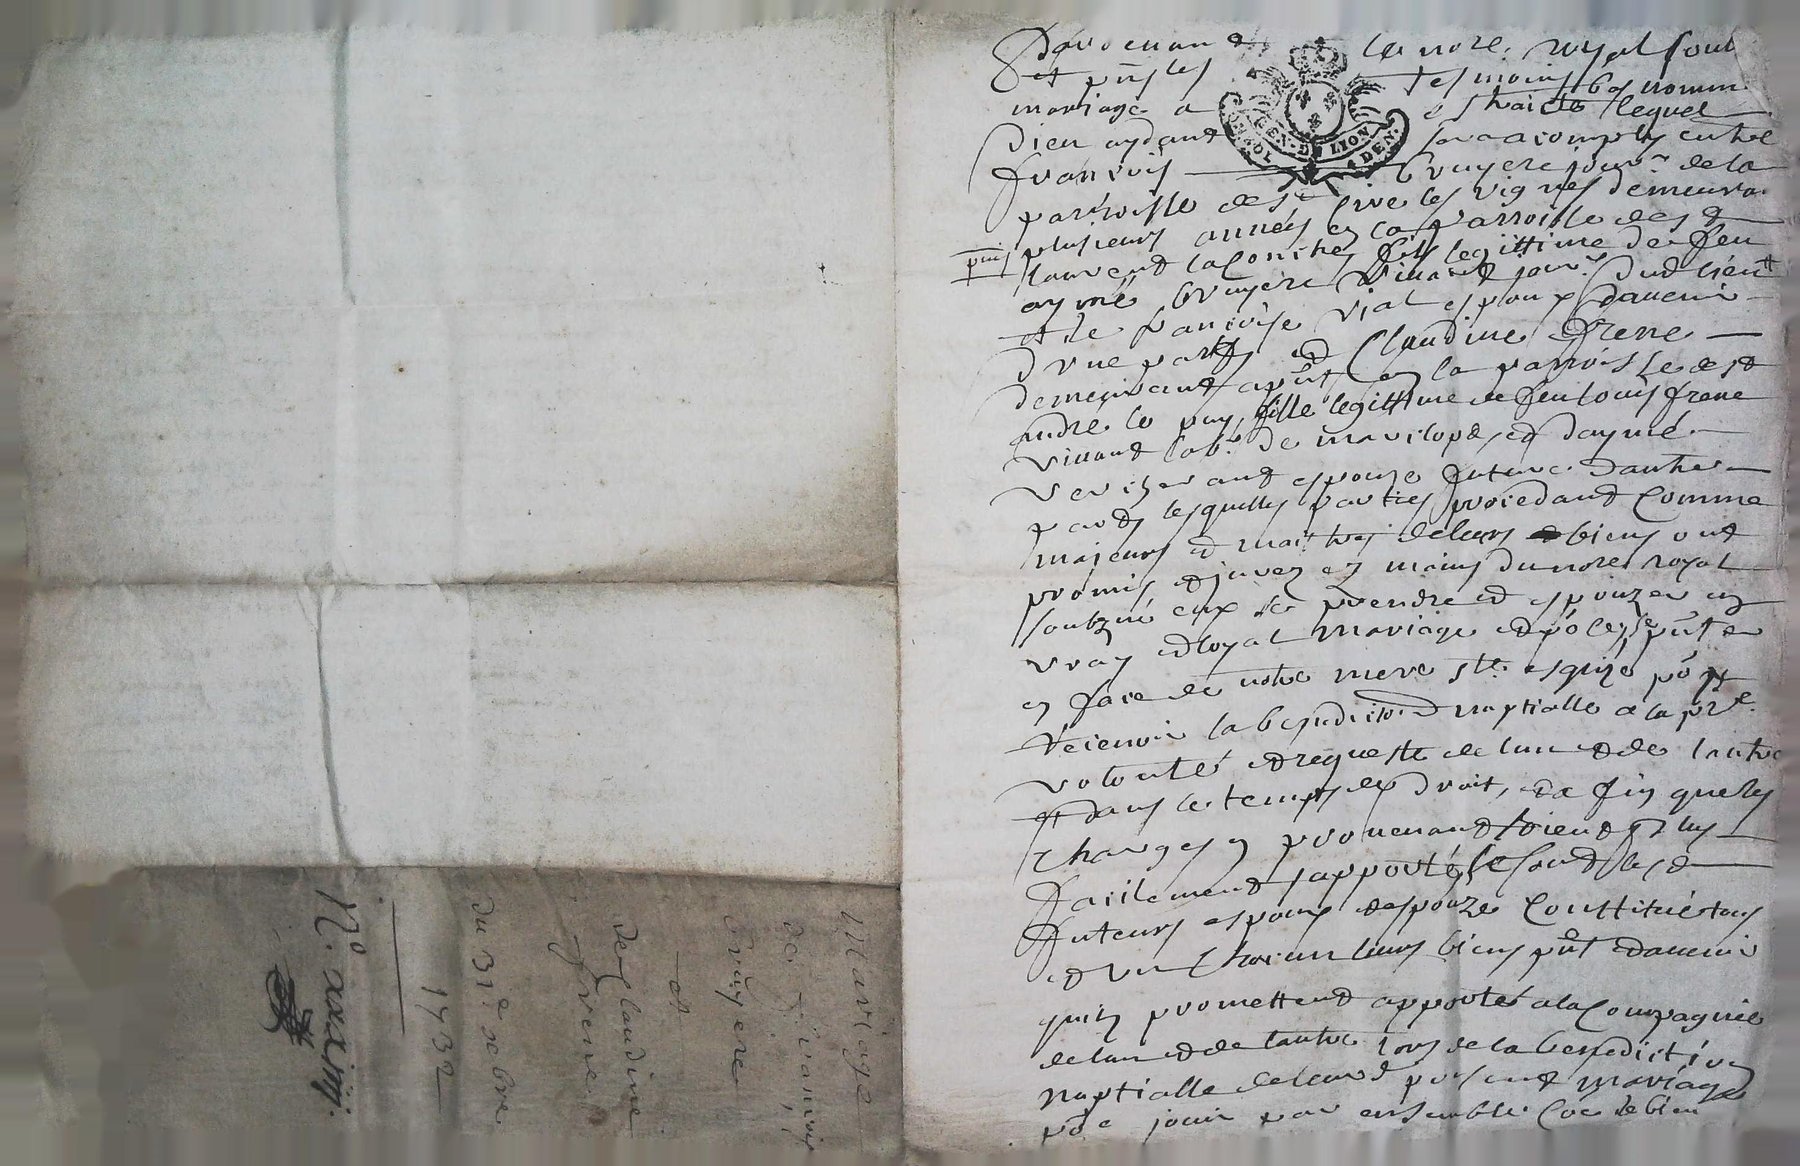 Pardevant le nore. royal soub
et pñs les tesmoins bas nomm
mariage a estraicté lequel
Dieu aydant sera acomply entre
GEN. DE LION
DEN.
françois bruyere jour.r de la
parroisse de st. les vignes demeura
puis plusieurs annéés en la parroisse de st
laurent laconche fils legittime de feu
aymé bruyere vivant jour.r dud lieu
et de françoise vial espoux davenir
d'vne part, et Claudine frene
demeurant a pñt en la parroisse de st
andré le puy, fille legittime de feu louis frene
vivant lab.r de et daymé
espouze future dautre
part, lesquelles parties procedant comme
majeurs et maitres de leurs biens ont
promis, et jurez es mains du nore. royal
soubzné eux se prendre et espouzer en
vray et loyal mariage et se pñter
en face de notre mere ste. esglize po.r
recevoir la benediction nuptialle a la pre.
volonté et requeste de lun et de lautre
et dans le temps de droit, et a fin que les
charges en provenant soient plus
facilement supportés se sont lesd
futeurs espoux et espouze constitués tous
et vn chacun leurs biens pñt et davenir
quils promettent apporter a la compagnie
de lun et de lautre lors de la benediction
nuptialle de leur present mariage
po.r jouir par ensemble
Mariage
de françois
bruyere
et
de claudine
frene
du 31e xbre
1732
N.o xxxiiij.